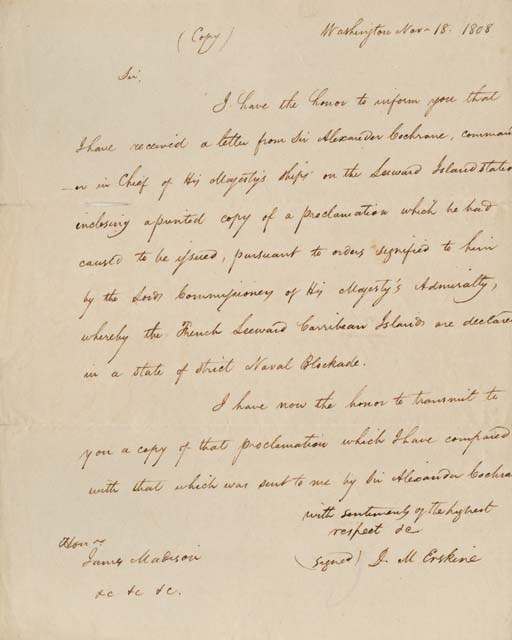 (Copy)
Washington Nov. 18. 1808
Sir,
I have the honor to inform you that
I have received a letter from Sir Alexander Cochrane, comman
er in Chief of His Majesty's ships on the Leeward Island statio
inclosing a printed copy of a proclamation which he had
caused to be issued, pursuant to orders signified to him
by the Lords Commissioners of His Majesty's Admiralty,
whereby the French Leeward Carribean Islands are declared
in a state of strict Naval Blockade.
I have now the honor to transmit to
you a copy of that proclamation which I have compared
with that which was sent to me by Sir Alexander Cochra
with sentiments of the highest
respect &c
(signed) D. M Erskine
Honble
James Madison
&c &c &c.